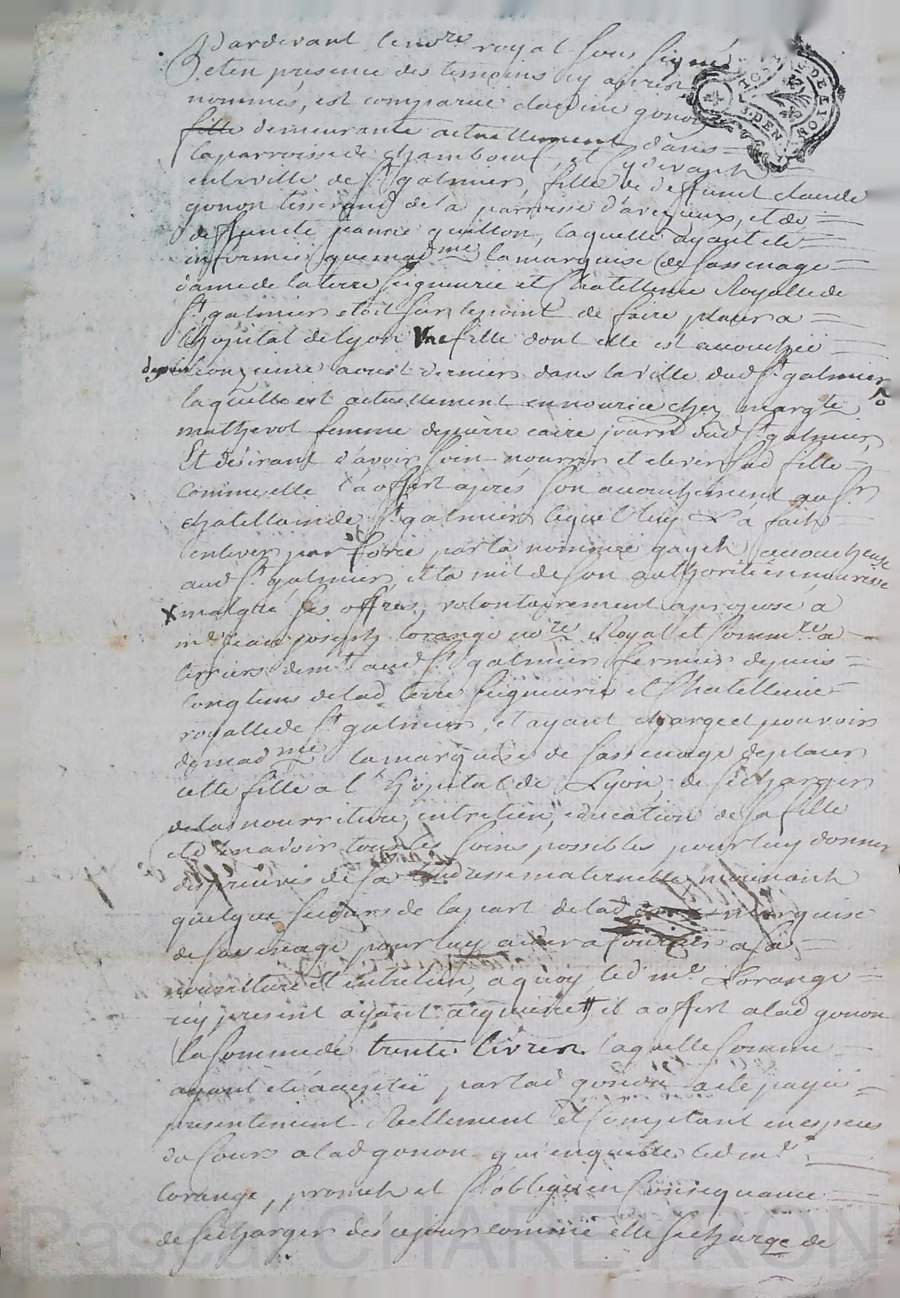 Pardevant le no.re royal sous signé
et en presence des temoins cy apres
nommés, est comparüe claudine gonon
fille demeurante actuellement dans
la parroisse de chambœuf, cy devant
en la ville de S.t galmier, fille de deffunt claude
gonon tisserand de la parroisse d'aveyzieux, et de
deffuncte guillon, laquelle ayant eté
informée que mad.me la marquise de Sassenage
dame de la terre seigneurie et Chatellenie Royalle de
S.t galmier etoit sur le point de faire placer a
l'hopital de Lyon Une fille dont elle est accouchée
depuis le onzieme aoust dernier dans la ville dud S.t galmier
laquelle est actuellement en nourice chez marg.te
mathevot femme de pierre caire journ.r dud S.t galmier,
Et désirant d'avoir soin nourrir et elever sad fille
comme elle l'a offert après son accouchement au S.r
chatellain de S.t galmier lequel luy a fait
enlever par force par la nommée gayet accoucheuse
aud S.t galmier, et la mit de son authorité en nourisse
malgré ses offres, volontairement a proposé a
m.e jean joseph Lorange no.re Royal et Comm.re a
terriers dem.t aud S.t galmier fermier depuis
longtems de lad terre seigneurie et Chatellenie
royalle de S.t galmier, et ayant charge et pouvoir
de mad.me la marquise de Sassenage de placer
cette fille a l'hopital de Lyon, de se charger
de la nourriture, entretien, education de sa fille
et d'en avoir tous les soins possibles pour luy donner
des preuves de sa tendresse maternelle moienant
quelque secours de la part de lad marquise
de Sassenage pour luy aider a fournir a sa
nourriture et entretien, a quoy led m.e Lorange
cy present ayant acquiescé, il a offert a lad gonon
la somme de trente livres laquelle somme
ayant eté acceptée par lad gonon a eté payée
presentement Reellement et Comptant en especes
du Cours a lad gonon qui en quitte led m.e
Lorange, promet et s'oblige en Consequance
de se charger des ce jour comme elle se charge de
Pascal CHAREYRON